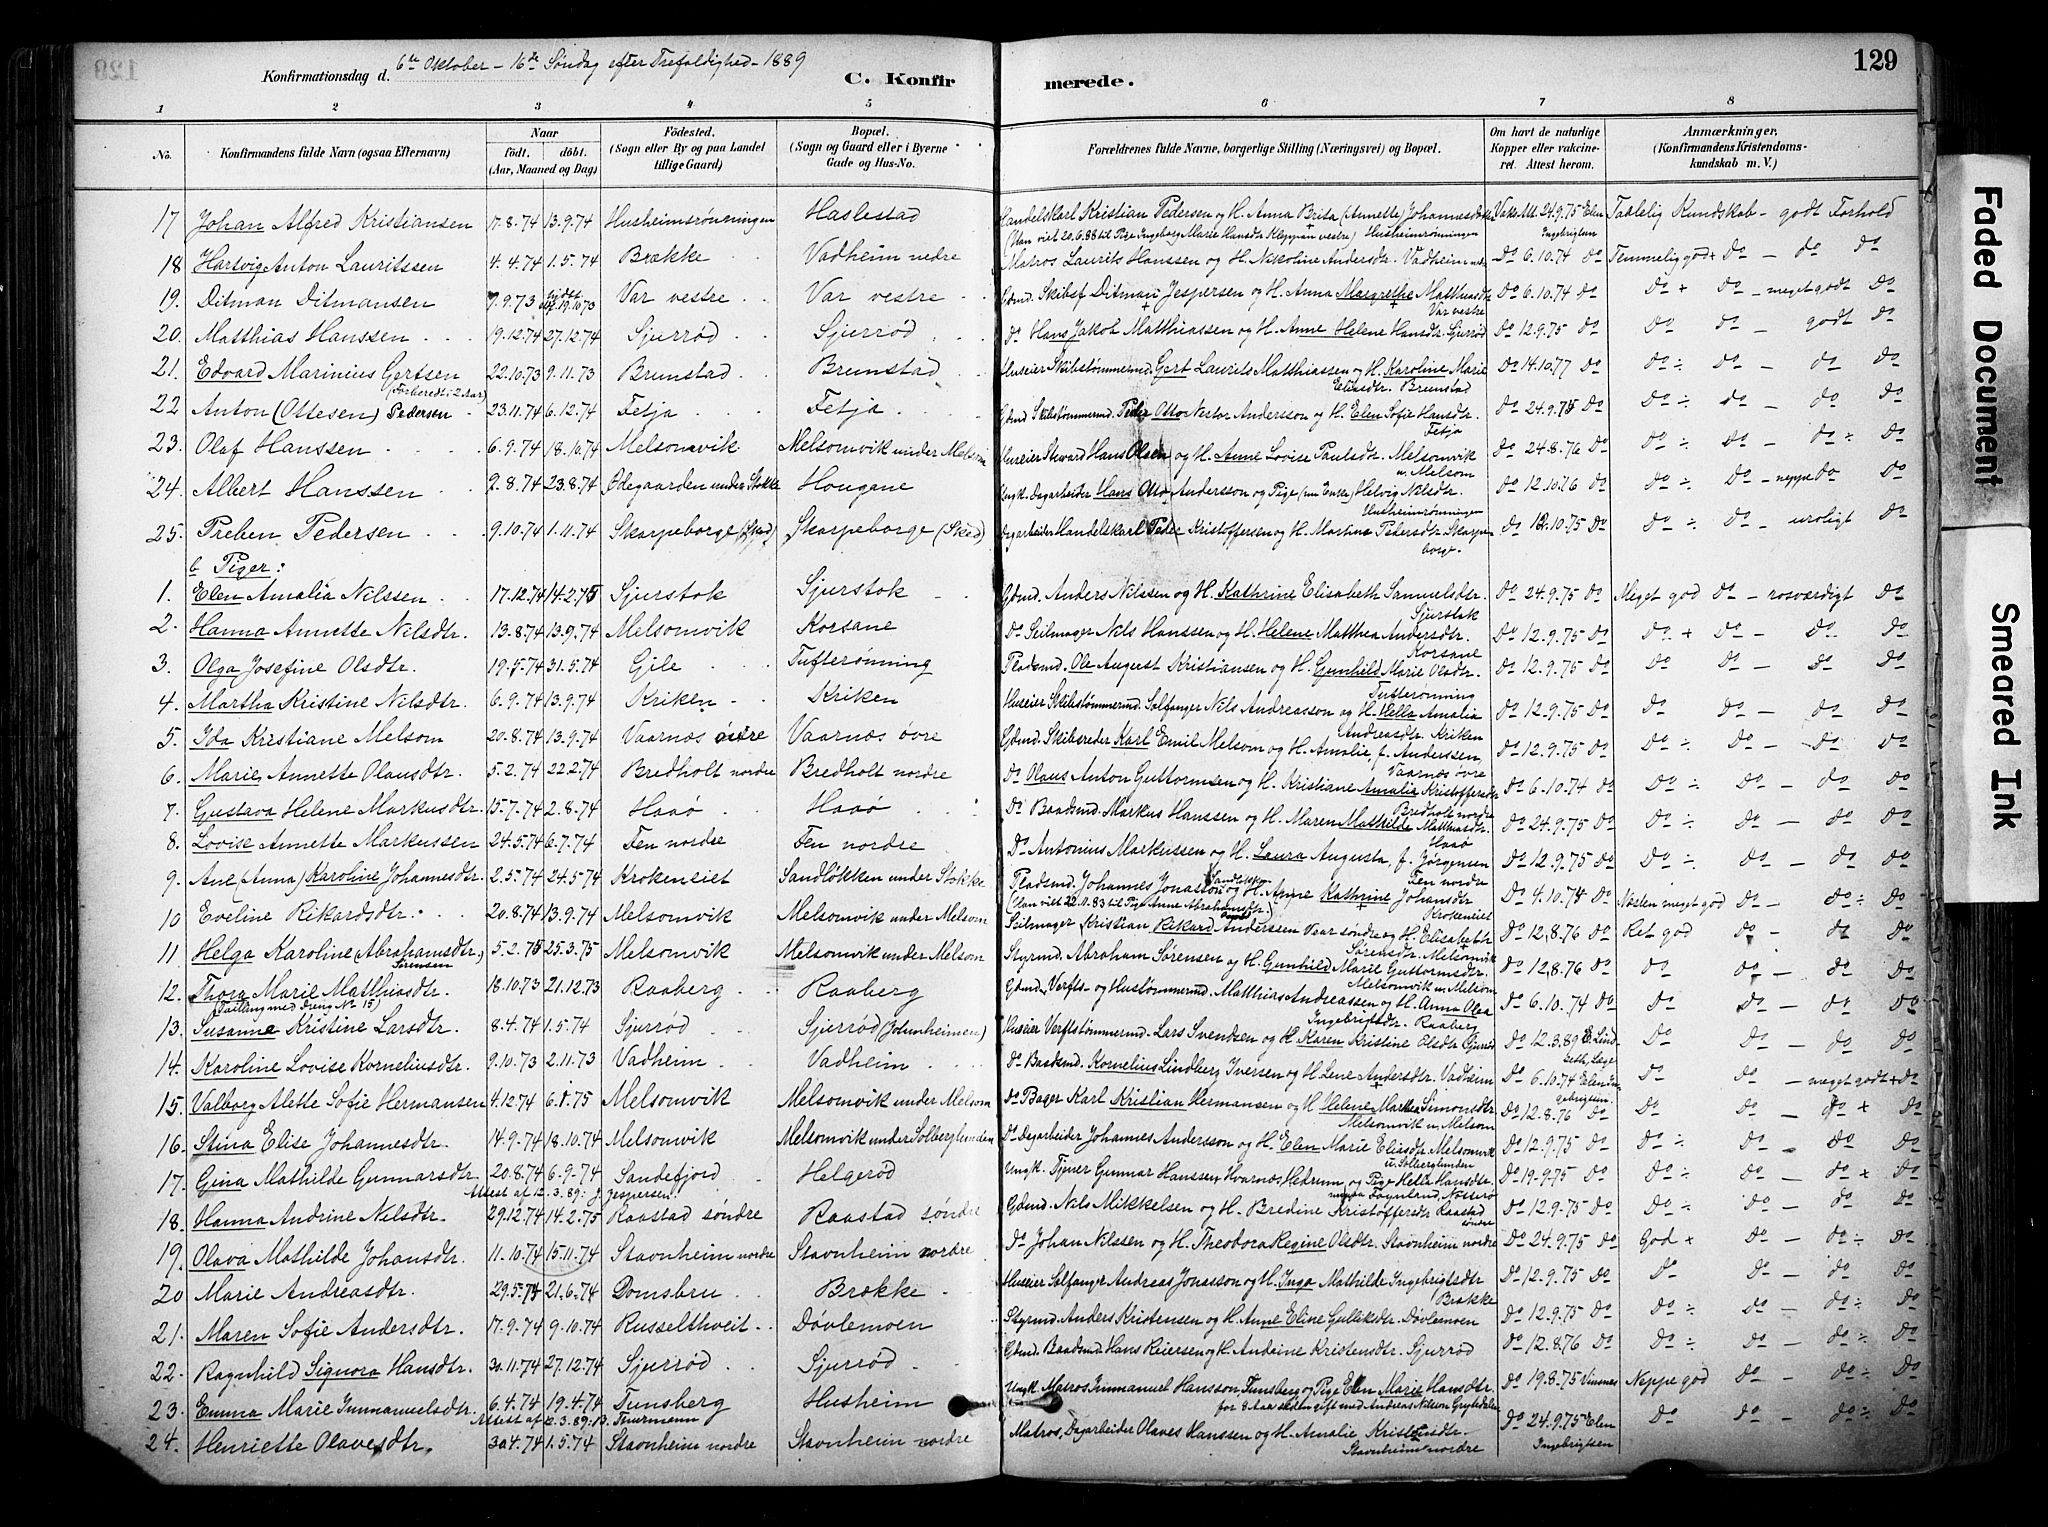 128
Konfirmationsdag d. 6te Oktober – 16de Søndag efter Trefoldighed – 1889
C. Konfirmerede.
129
1 2 3 4 5 6 7 8
No.
Konfirmandens fulde Navn (ogsaa Efternavn)
Naar
født. døbt.
(Aar, Maaned og Dag)
Fødested.
(Sogn eller By og paa Landet tillige Gaard)
Bopæl.
(Sogn og Gaard eller i Byerne Gade og Hus-No.
Forældrenes fulde Navne, borgerlige Stilling (Næringsvei) og Bopæl.
Om havt de naturlige Kopper eller vakcineret. Attest herom.
Anmærkninger.
(Konfirmandens Kristendomskundskab m. V.)
17 Johan Alfred Kristiansen 17.8.74 13.9.74 Husheimsrønningen Haslestad Handelskarl Kristian Pedersen og H. Anna Brita (Annette) Johannesdtr. Vaks. Att. 24.9.75 Elen Ingebrigtsen Taalelig Kundskab – godt Forhold
(Han viet 20.6.88 til Pige Ingeborg Marie Hansdtr. Kleppan vestre) Husheimrønningen
18 Hartvig Anton Lauritssen 4.4.74 1.5.74 Brække Vadheim nedre Matros Laurits Hanssen og H. Nikoline Andersdtr. Vadheim nedre Do 6.10.74 Do Temmelig god + Do – do Do
19. Ditman Ditmansen 7.9.73 19.10.73 Var vestre Var vestre Gdmd. Skibsf. Ditman Jespersen og H. Anna Margrethe Matthiasdtr. Var vestre Do 6.10.74 Do Do + Do – meget godt Do
20. Matthias Hanssen 19.12.74 27.12.74 Sjurrød Sjurrød Do Hans Jakob Matthiassen og H. Anne Helene Hansdtr. Sjurrød Do 12.9.75 Do Do Do – godt Do
21. Edvard Marinius Gertsen 22.10.73 9.11.73 Brunstad Brunstad Huseier Skibstømmermd. Gert Laurits Matthiassen og H. Karoline Marie Eliasdtr. Brunstad Do 14.10.77 Do Do ÷ Do – do Do
(Forberedt i 2 Aar)
22 Anton (Ottesen) Pedersen 23.11.74 6.12.74 Fetja Fetja Gdmd. Skibstømmermd. Peder Otto Nestor Andersson og H. Elen Sofie Hansdtr. Fetja Do 24.9.75 Do Do ÷ Do – do Do
23. Olaf Hanssen 6.9.74 18.10.74 Melsomvik Melsomvik under Melsom Huseier Steward Hans Olsen og H. Anne Lovise Paulsdtr. Melsomvik u. Melsom Do 24.8.76 Do Do ÷ Do – do ÷ Do
24. Albert Hanssen 9.8.74 23.8.74 Ødegaarden under Stokke Hougane Ungk. Dagarbeider Hans Otto Andersson og Pige (nu Enke) Helvig Nilsdtr. Husheimrønningen Do 12.10.76 Do Do ÷ Do – neppe do Do
25. Preben Pedersen 9.10.74 1.11.74 Skarpeborge (Sked) Skarpeborge (Sked) Dagarbeider Handelskarl Peder Kristoffersen og H. Martine Pedersdtr. Skarpeborge. Do 12.10.75 Do Do ÷ Do – uroligt Do
b Piger:
1. Elen Amalia Nilssen 17.12.74 14.2.75 Sjurstok Sjurstok Gdmd. Anders Nilssen og H. Kathrine Elisabeth Samuelsdtr. Sjurstok Do 24.9.75 Do Meget god Do – rosværdigt Do
2. Hanna Annette Nilsdtr. 13.8.74 13.9.74 Melsomvik Korsane Do Seilmager Nils Hanssen og H. Helene Matthea Andersdtr. Korsane Do 12.9.75 Do Do + Do – Do Do
3. Olga Josefine Olsdtr. 19.5.74 31.5.74 Gile Tufterønning Pladsmd. Ole August Kristiansen og H. Gunhild Marie Olsdtr. Tufterønning Do 12.9.75 Do Do Do – Do Do
4. Martha Kristine Nilsdtr. 6.9.74 13.9.74 Kriken Kriken Huseier Skibstømmermd. Sælfanger Nils Andreasson og H. Hella Amalia Andreasdtr. Kriken Do 12.9.75 Do Do Do – do Do
5. Ida Kristiane Melsom 20.8.74 13.9.74 Vaarnæs øvre Vaarnæs øvre Gdmd. Skibsreder Karl Emil Melsom og H. Amalie, f. Anderssen, Vaarnæs øvre Do 12.9.75 Do Do ÷ Do – do Do
6. Marie Annette Olausdtr. 5.2.74 22.2.74 Bredholt nordre Bredholt nordre Do Olaus Anton Guttormsen og H. Kristiane Amalia Kristoffersdtr. Bredholt nordre Do 6.10.74 Do Do ÷ Do – do Do
7. Gustava Helene Markusdtr. 15.7.74 2.8.74 Haaø Haaø Do Baadsmd. Markus Hanssen og H. Maren Mathilde Matthiasdtr. Haaø Do 24.9.75 Do Do ÷ Do – do Do
8. Lovise Annette Markussen 24.5.74 6.7.74 Fen nordre Fen nordre Do Antonius Markussen og H. Laura Augusta, f. Jørgensen Fen nordre Do 12.9.75 Do Do ÷ Do – do Do
9. Ane (Anna) Karoline Johannesdtr. 2.5.74 24.5.74 Krokeneiet Sandløkken under Stokke Pladsmd. Johannes Jonasson og H. Anne Kathrine Johansdtr. Krokeneiet Do 4.10.75 Do Næsten meget god Do – do ÷ Do
(Han viet 22.11.83 til Pige Anne Abrahamsdtr.)
10 Eveline Rikardsdtr. 20.8.74 13.9.74 Melsomvik Melsomvik under Melsom Seilmager Kristian Rikard Anderssen Vear søndre og H. Elisabeth Sørensdtr. Melsomvik Do 12.8.76 Do Ret god Do – do Do
11 Helga Karoline (Abrahamsdtr.) Sørensen 5.2.75 25.3.75 Melsomvik Melsomvik under Melsom Styrmd. Abraham Sørensen og H. Gunhild Marie Guttormsdtr. Melsomvik u. Melsom Do 12.8.76 Do Do Do – do Do
12. Thora Marie Matthiasdtr. 18.10.73 21.12.73 Raaberg Raaberg Gdmd. Verfts- og Hustømmermd. Matthias Andreassen og H. Anna Olea Ingebrigtsdtr. Raaberg Do 6.10.74 Do Do Do – do Do
(Tvilling med Dreng No 15)
13. Susanne Kristine Larsdtr. 8.4.74 1.5.74 Sjurrød Sjurrød (Johnheimen) Huseier Verftstømmermd. Lars Svendsen og H. Karen Kristine Olsdtr. Sjurrød Do 12.3.89 E. Lindseth, Læge Do Do – do Do
14. Karoline Lovise Korneliusdtr. 9.10.73 2.11.73 Vadheim Vadheim Do Baadsmd. Kornelius Lindberg Iversen og H. Lene Andersdtr. Vadheim Do 6.10.74 Elen Ingebrigtsen. Do Do – meget godt + Do
15. Valborg Alette Sofie Hermansen 4.12.74 6.1.75 Melsomvik Melsomvik under Melsom Do Bager Karl Kristian Hermansen og H. Helene Marthea Simonsdtr. Melsomvik u. Melsom Do 12.8.76 Do Do Do – do + Do
16. Stina Elise Johannesdtr. 14.9.74 18.10.74 Melsomvik Melsomvik under Solberglunden Do Dagarbeider Johannes Andersson og H. Elen Marie Eliasdtr. Melsomvik u. Solberglunden Do 12.9.75 Do Do ÷ Do – do Do
17. Gina Mathilde Gunnarsdtr. 20.8.74 6.9.74 Sandefjord Helgerød Ungk. Tjener Gunnar Hanssen Hvarnæs Hedrum og Pige Hella Hansdtr. Føynland, Nøtterø Do 19.9.75 Do Do ÷ Do – do + Do
Attest af 12.3.89: J. Jespersen.
18. Hanna Andrine Nilsdtr. 29.12.74 14.2.75 Raastad søndre Raastad søndre Gdmd. Nils Mikkelsen og H. Bredine Kristoffersdtr. Raastad søndre Do 12.9.75 Do Do ÷ Do – do Do
19. Olava Mathilde Johansdtr. 11.10.74 15.11.74 Stavnheim nordre Stavnheim nordre Do Johan Nilssen og H. Theodora Regine Olsdtr. Stavnheim nordre Do 24.9.75 Do God + Do – do ÷ Do
20 Marie Andreasdtr. 29.5.74 21.6.74 Domsbru Brække Huseier Sælfanger Andreas Jonasson og H. Inga Mathilde Ingebrigtsdtr. Brække Do 12.9.75 Do Do Do – do Do
21. Maren Sofie Andersdtr. 17.9.74 9.10.74 Russelthveit Døvlemoen Styrmd. Anders Kristensen og H. Anne Eline Gulliksdtr. Døvlemoen Do 12.9.75 Do Do ÷ Do – do ÷ Do
22. Ragnhild Signora Hansdtr. 30.11.74 27.12.74 Sjurrød Sjurrød Gdmd. Baadsmd. Hans Reiersen og H. Andrine Kristensdtr. Sjurrød Do 12.8.76 Do Do ÷ Do – do ÷ Do
23. Emma Marie Immanuelsdtr. 6.4.74 19.4.74 Tunsberg Husheim Ungk. Matros Immanuel Hansson Tunsberg og Pige Elen Marie Hansdtr. Do 19.8.75 Neppe god Do – do ÷ Do
Attest af 12.3.89: B. Tuermann
for 8 Aar siden gift med Andreas Nilsen
24. Henriette Olavesdtr. 30.4.74 1.5.74 Stavnheim nordre Stavnheim nordre Matros, Dagarbeider Olaves Hanssen og H. Amalie Kristensdtr. Stavnheim nordre Do 24.9.75 Elen Ingebrigtsen Do Do – do ÷ Do
Faded Document
Smeared Ink